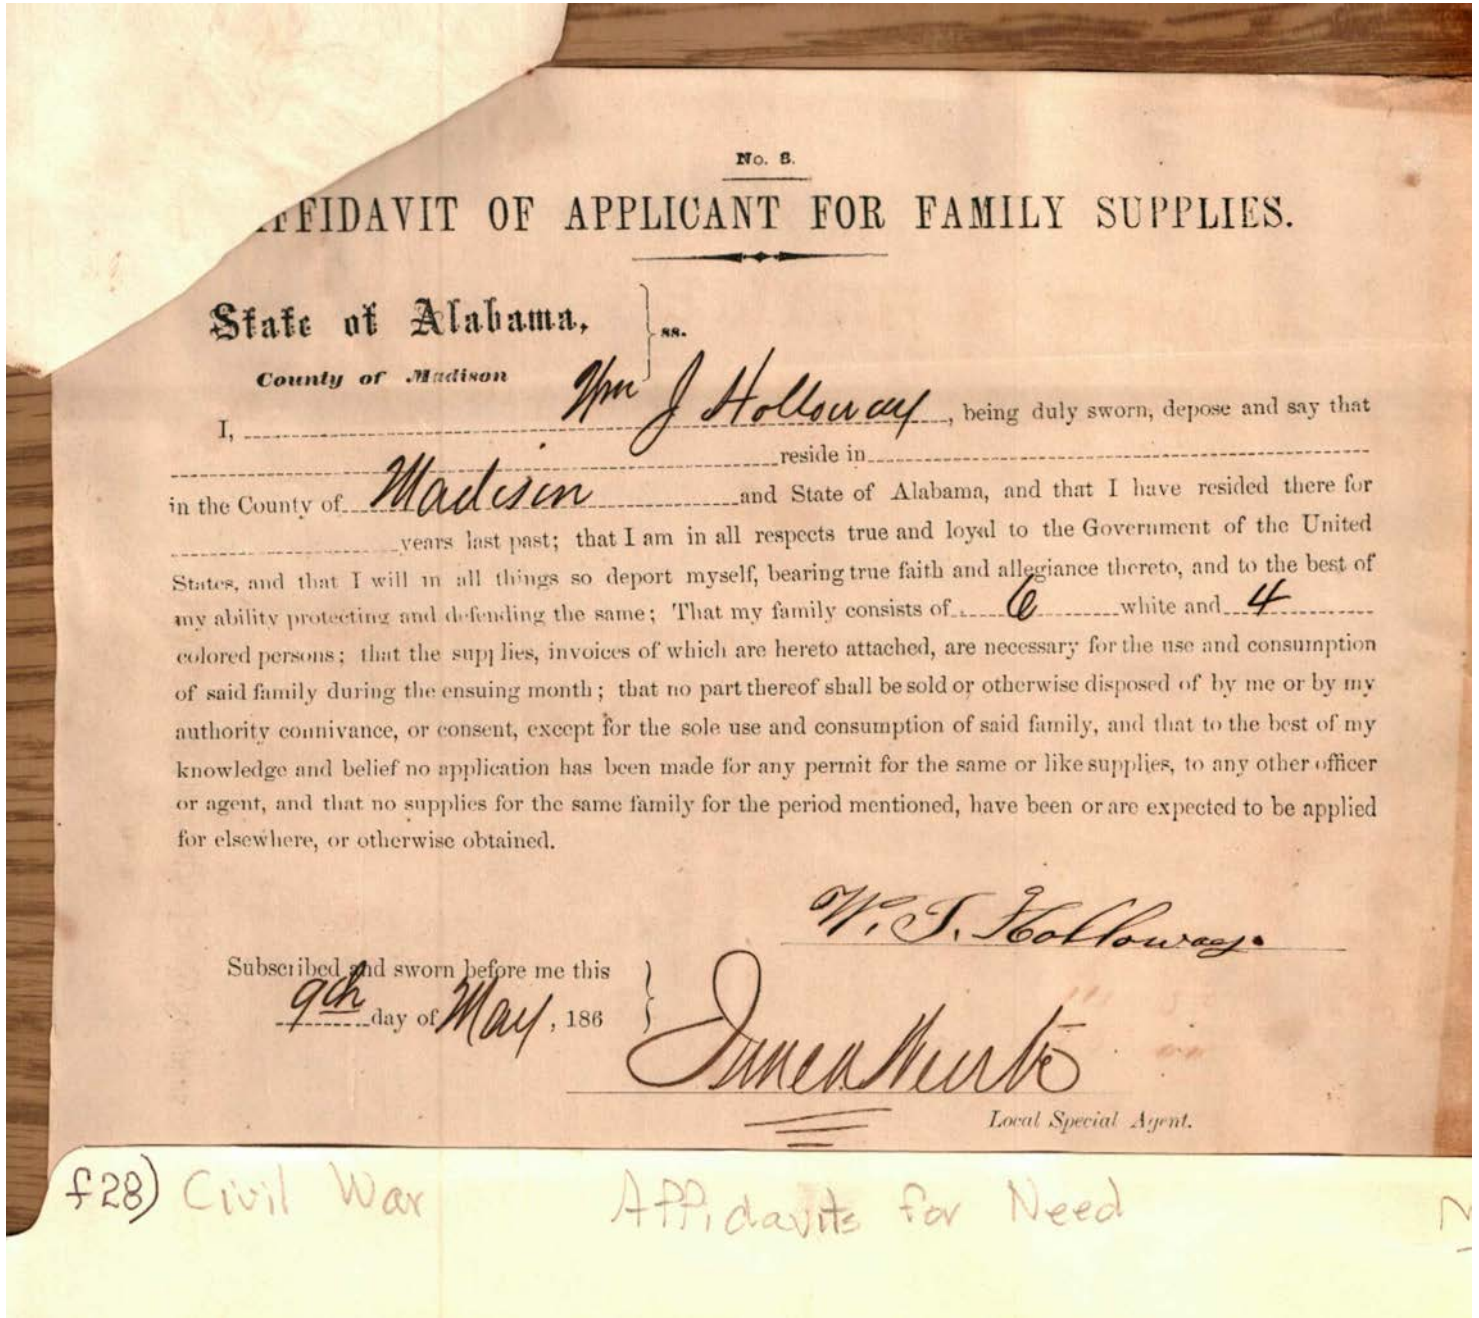 No. 8.
AFFIDAVIT OF APPLICANT FOR FAMILY SUPPLIES.
State of Alabama, } ss.
County of Madison
I, Wm J Holloway, being duly sworn, depose and say that
reside in
in the County of Madison and State of Alabama, and that I have resided there for
years last past; that I am in all respects true and loyal to the Government of the United
States, and that I will in all things so deport myself, bearing true faith and allegiance thereto, and to the best of
my ability protecting and defending the same; That my family consists of 6 white and 4
colored persons; that the supplies, invoices of which are hereto attached, are necessary for the use and consumption
of said family during the ensuing month; that no part thereof shall be sold or otherwise disposed of by me or by my
authority connivance, or consent, except for the sole use and consumption of said family, and that to the best of my
knowledge and belief no application has been made for any permit for the same or like supplies, to any other officer
or agent, and that no supplies for the same family for the period mentioned, have been or are expected to be applied
for elsewhere, or otherwise obtained.
W. J. Holloway.
Subscribed and sworn before me this
9th day of May, 186 }
Local Special Agent.
f28) Civil War Affidavits for Need